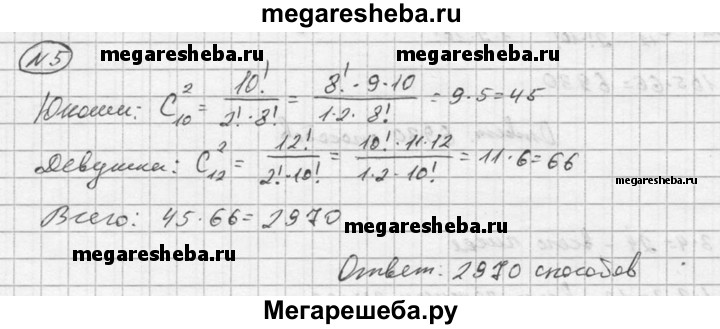 megaresheba.ru
N5 megaresheba.ru megaresheba.ru
Юноши: C₁₀² = 10!/(2!·8!) = (8!·9·10)/(1·2·8!) = 9·5=45
Девушки: C₁₂² = 12!/(2!·10!) = (10!·11·12)/(1·2·10!) = 11·6=66
megaresheba.ru
Всего: 45·66=2970
megaresheba.ru megaresheba.ru
Ответ: 2970 способов
Мегарешеба.ру